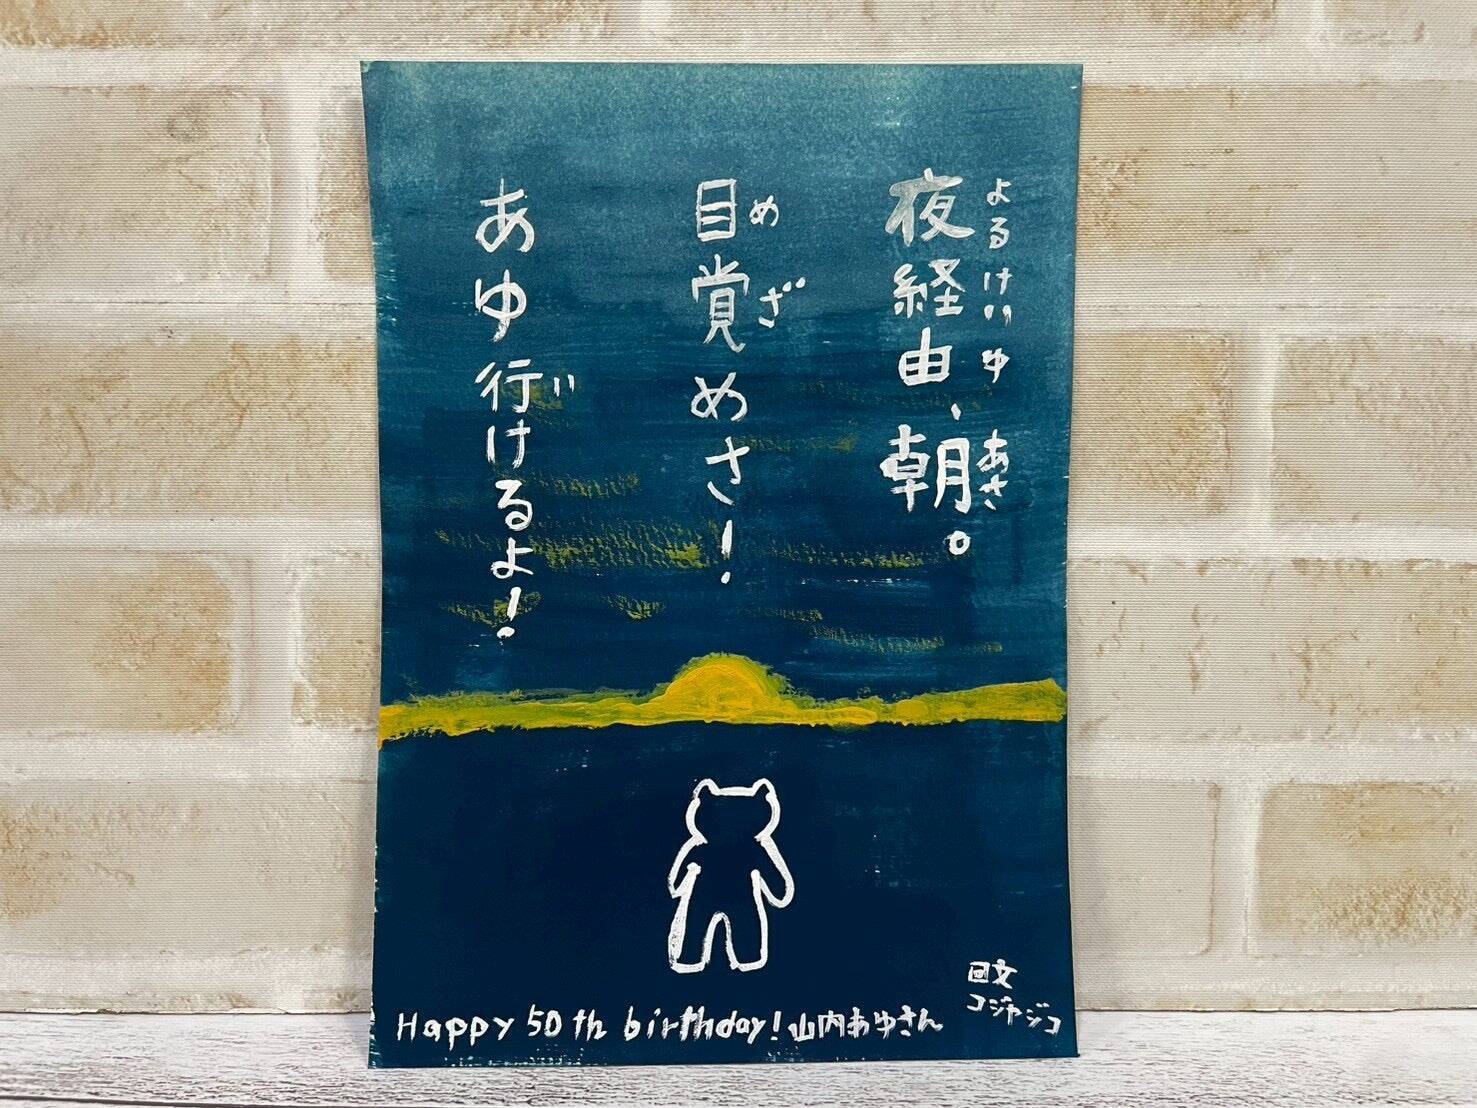 夜経由、朝。
よるけいゆ あさ
目覚めさ！
めざ
あゆ行けるよ！
い
回文
コジヤジコ
Happy 50th birthday! 山内あゆさん